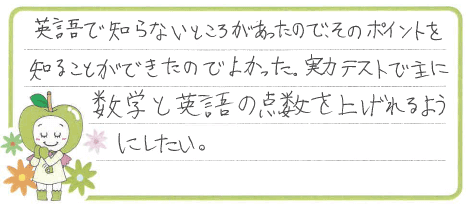 英語で知らないところがあったのでそのポイントを
知ることができたのでよかった。実力テストで主に
数学と英語の点数を上げれるよう
にしたい。